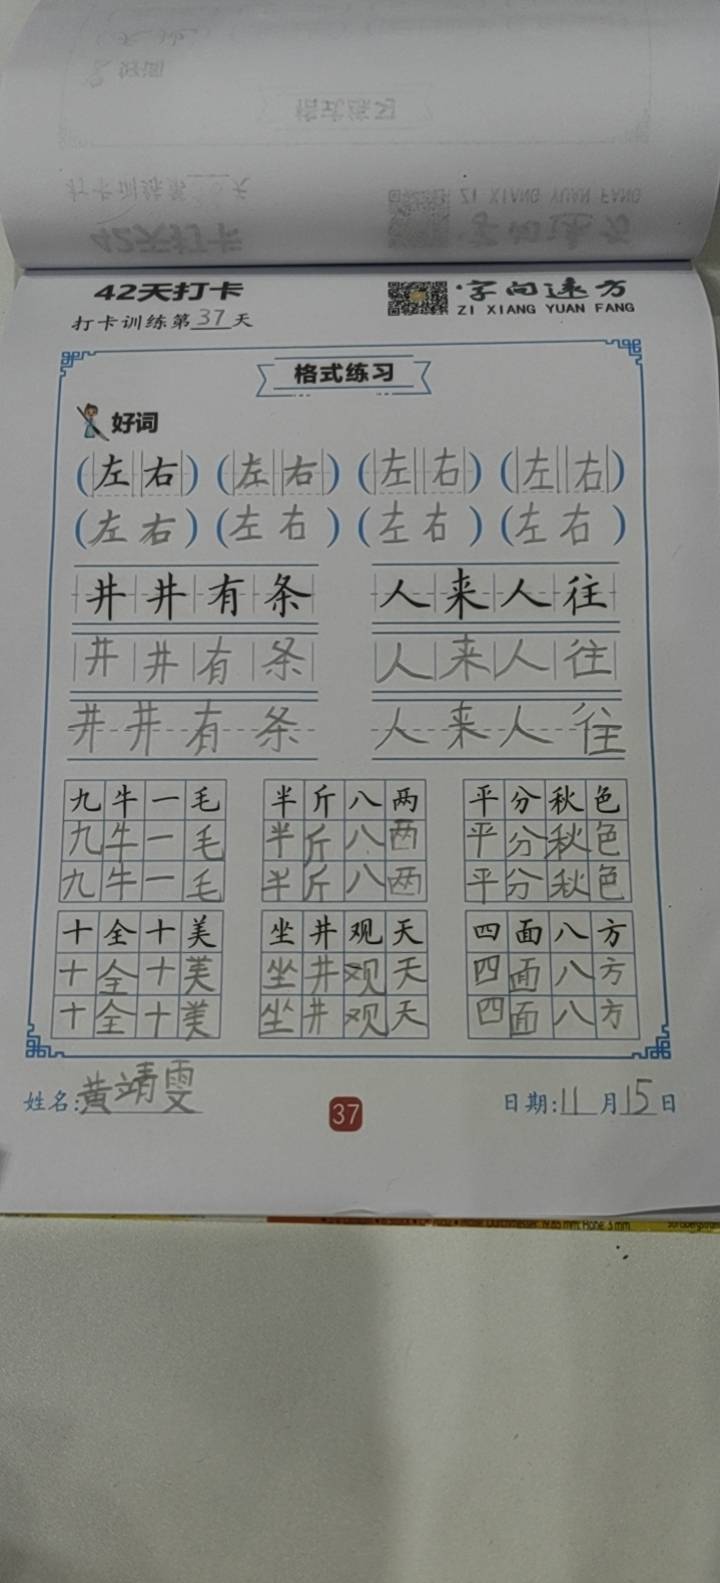 42天打卡
字向速方
ZI XIANG YUAN FANG
打卡训练第37天
格式练习
好词
(左右) (左右) (左右) (左右)
(左右) (左右) (左右) (左右)
井井有条 人来人往
井井有条 人来人往
井井有条 人来人往
九牛一毛 半斤八两 平分秋色
九牛一毛 半斤八两 平分秋色
九牛一毛 半斤八两 平分秋色
十全十美 坐井观天 四面八方
十全十美 坐井观天 四面八方
十全十美 坐井观天 四面八方
姓名:黄靖雯 37 日期:11月15日